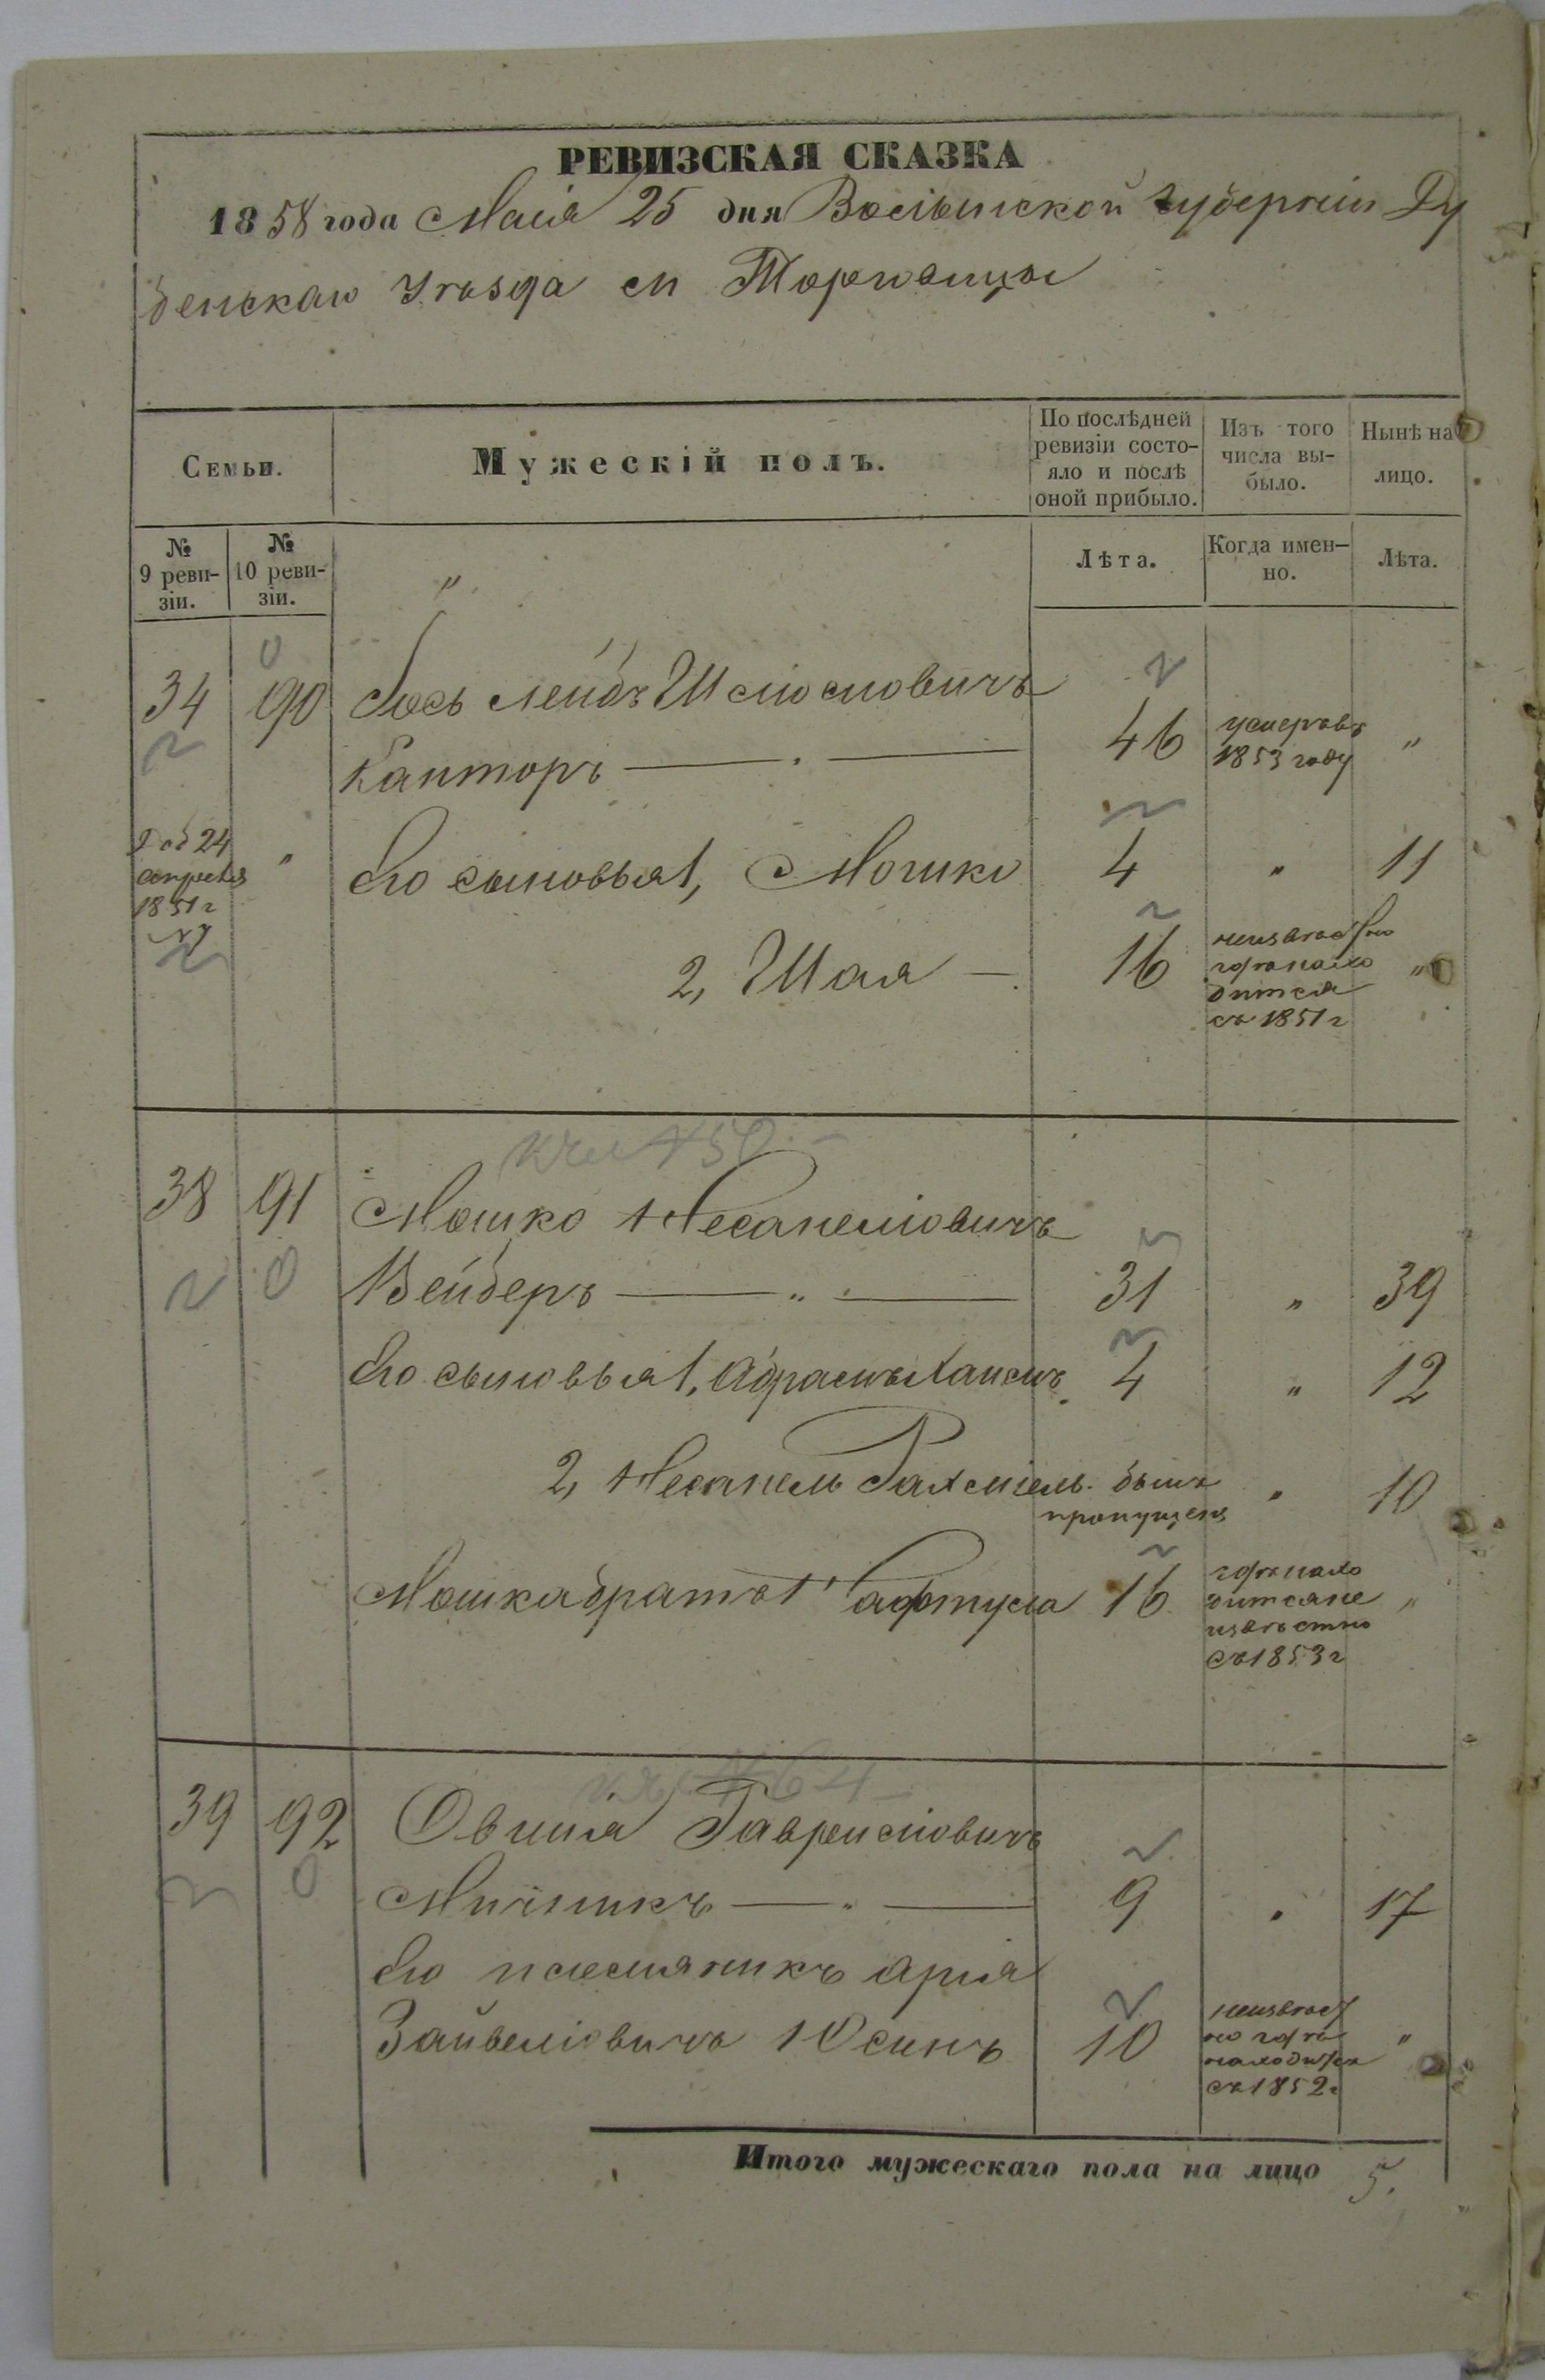 РЕВИЗСКАЯ СКАЗКА
1858 года Маія 25 дня Волынской губерніи Ду
бенскаго Уѣзда м Торговицы
Семьи.
Мужескій полъ.
По послѣдней ревизіи состо-
яло и послѣ
оной прибыло.
Изъ того
числа вы-
было.
Нынѣ на
лицо.
№
9 реви-
зіи.
№
10 реви-
зіи.
Лѣта.
Когда имен-
но.
Лѣта.
34 90 Лейбъ Шлiомовичъ
Канторъ 46 умеръ въ
1853 году "
24
апреля
1851 г
" Его сыновья 1, Мошко 4 " 11
2, Шая 16 неизвѣстно
гдѣ нахо
дится
съ 1851 г "
38 91 Мошко Несанелiовичъ
Вейберъ 31 " 39
Его сыновья 1, Абрамъ Хаимъ 4 " 12
2, Несанель Рахмiель былъ
пропущенъ " 10
Мошка братъ 1 16 гдѣ нахо
дится не
извѣстно
съ 1853 г "
39 92 Овшiя Гаврилiовичъ
9 " 17
Его племянникъ Арiя
Зайвелiовичъ 10 неизвѣст
но гдѣ
находится
съ 1852 г "
Итого мужескаго пола на лицо 5.